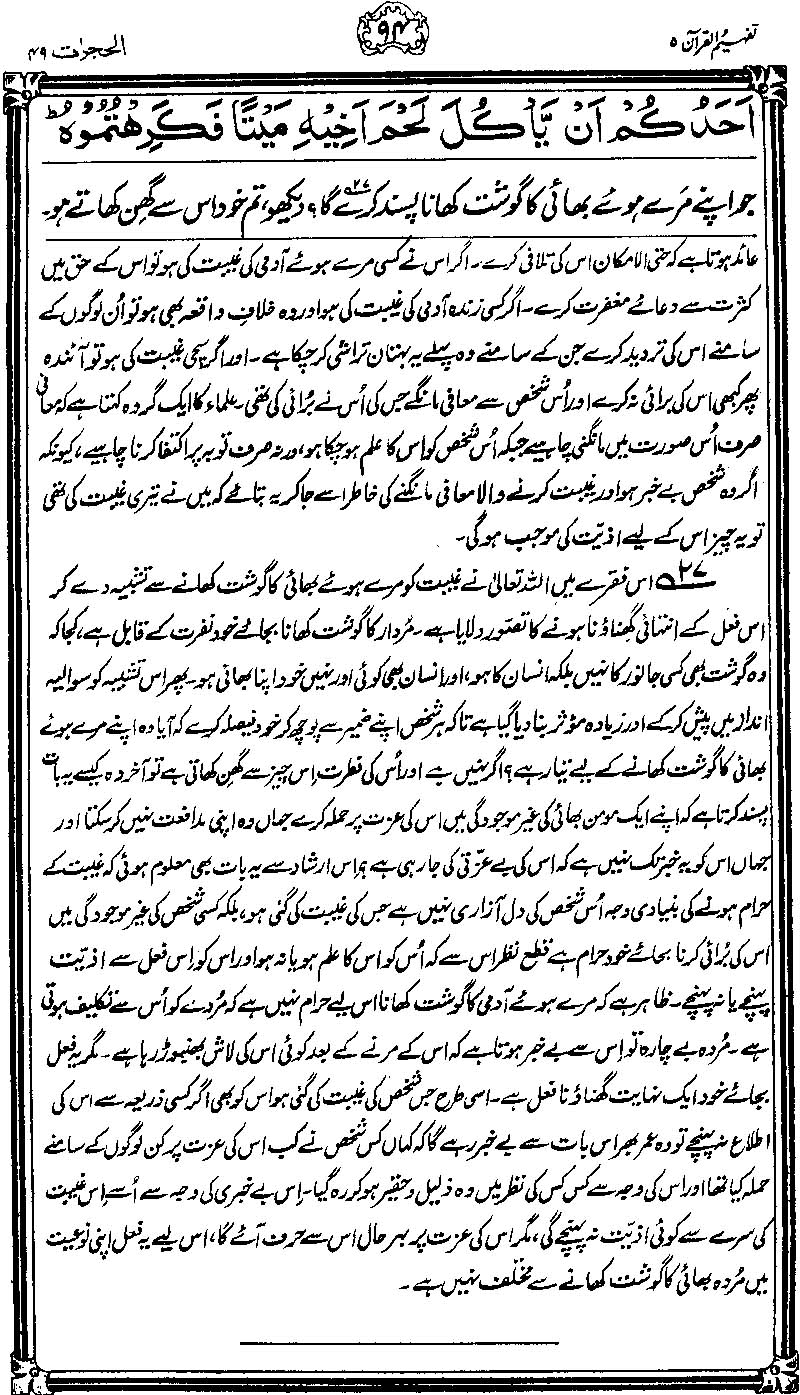 تفہیم القرآن ۵
۹۴
الحجرات ۴۹
اَحَدُكُمْ اَنْ يَّاْكُلَ لَحْمَ اَخِيْهِ مَيْتًا فَكَرِهْتُمُوْهُ ؕ
جو اپنے مَرے ہوئے بھائی کا گوشت کھانا پسند کرے گا؟۲۷ دیکھو، تم خود اس سے گھِن کھاتے ہو۔
عائد ہوتا ہے کہ حتی الامکان اس کی تلافی کرے۔ اگر اس نے کسی مرے ہوئے آدمی کی غیبت کی ہو تو اس کے حق میں
کثرت سے دعائے مغفرت کرے۔ اگر کسی زندہ آدمی کی غیبت کی ہو اور وہ خلافِ واقعہ بھی ہو تو اُن لوگوں کے
سامنے اس کی تردید کرے جن کے سامنے وہ پہلے یہ بہتان تراشی کر چکا ہے۔ اور اگر سچی غیبت کی ہو تو آئندہ
پھر کبھی اس کی برائی نہ کرے اور اُس شخص سے معافی مانگے جس کی اُس نے بُرائی کی تھی۔ علماء کا ایک گروہ کہتا ہے کہ معافی
صرف اُس صورت میں مانگنی چاہیے جبکہ اُس شخص کو اس کا علم ہو چکا ہو، ورنہ صرف توبہ پر اکتفا کرنا چاہیے، کیونکہ
اگر وہ شخص بے خبر ہو اور غیبت کرنے والا معافی مانگنے کی خاطر اسے جا کر یہ بتائے کہ میں نے تیری غیبت کی تھی
تو یہ چیز اس کے لیے اذیّت کی موجب ہو گی۔
۲۷ اس فقرے میں اللہ تعالیٰ نے غیبت کو مرے ہوئے بھائی کا گوشت کھانے سے تشبیہ دے کر
اس فعل کے انتہائی گھناؤنا ہونے کا تصوّر دلایا ہے۔ مُردار کا گوشت کھانا بجائے خود نفرت کے قابل ہے، کجا کہ
وہ گوشت بھی کسی جانور کا نہیں بلکہ انسان کا ہو، اور انسان بھی کوئی اور نہیں خود اپنا بھائی ہو۔ پھر اس تشبیہ کو سوالیہ
انداز میں پیش کر کے اور زیادہ مؤثر بنا دیا گیا ہے تاکہ ہر شخص اپنے ضمیر سے پوچھ کر خود فیصلہ کرے کہ آیا وہ اپنے مرے ہوئے
بھائی کا گوشت کھانے کے لیے تیار ہے؟ اگر نہیں ہے اور اُس کی فطرت اِس چیز سے گھِن کھاتی ہے تو آخر وہ کیسے یہ بات
پسند کرتا ہے کہ اپنے ایک مومن بھائی کی غیر موجودگی میں اس کی عزت پر حملہ کرے جہاں وہ اپنی مدافعت نہیں کر سکتا اور
جہاں اس کو یہ خبر تک نہیں ہے کہ اس کی بے عزّتی کی جا رہی ہے؟ اس ارشاد سے یہ بات بھی معلوم ہوئی کہ غیبت کے
حرام ہونے کی بنیادی وجہ اُس شخص کی دل آزاری نہیں ہے جس کی غیبت کی گئی ہو، بلکہ کسی شخص کی غیر موجودگی میں
اس کی بُرائی کرنا بجائے خود حرام ہے قطع نظر اس سے کہ اُس کو اس کا علم ہو یا نہ ہو اور اس کو اِس فعل سے اذیّت
پہنچے یا نہ پہنچے۔ ظاہر ہے کہ مرے ہوئے آدمی کا گوشت کھانا اس لیے حرام نہیں ہے کہ مُردے کو اُس سے تکلیف ہوتی
ہے۔ مُردہ بے چارہ تو اِس سے بے خبر ہوتا ہے کہ اس کے مرنے کے بعد کوئی اس کی لاش بھنبھوڑ رہا ہے۔ مگر یہ فعل
بجائے خود ایک نہایت گھناؤنا فعل ہے۔ اسی طرح جس شخص کی غیبت کی گئی ہو اس کو بھی اگر کسی ذریعہ سے اس کی
اطلاع نہ پہنچے تو وہ عمر بھر اس بات سے بے خبر رہے گا کہ کہاں کس شخص نے کب اس کی عزت پر کن لوگوں کے سامنے
حملہ کیا تھا اور اس کی وجہ سے کس کس کی نظر میں وہ ذلیل و حقیر ہو کر رہ گیا۔ اس بے خبری کی وجہ سے اُسے اِس غیبت
کی سرے سے کوئی اذیّت نہ پہنچے گی، مگر اس کی عزت پر بہرحال اس سے حرف آئے گا، اس لیے یہ فعل اپنی نوعیت
میں مُردہ بھائی کا گوشت کھانے سے مختلف نہیں ہے۔